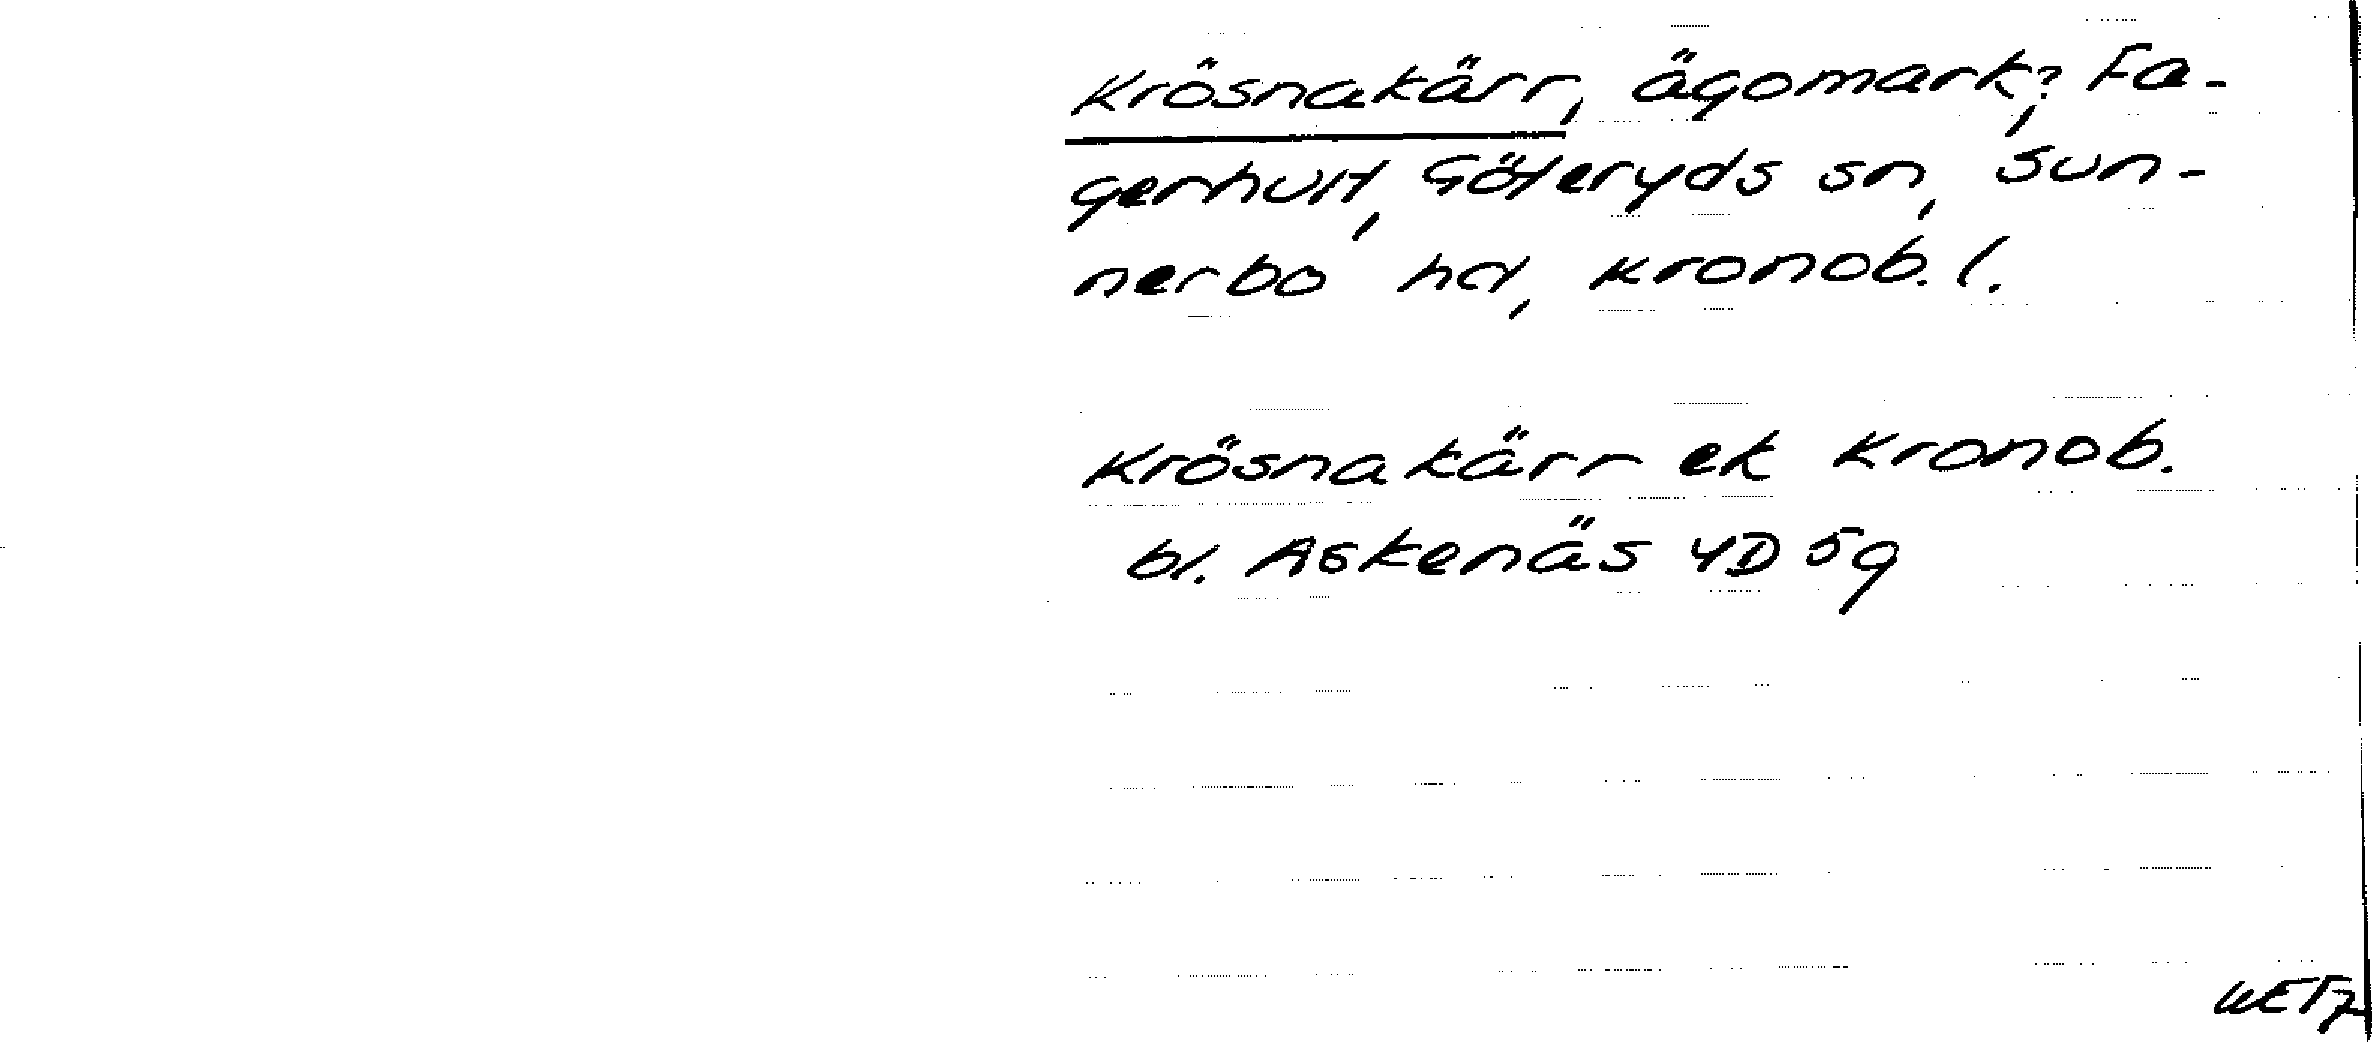 Krösnakärr, ägomark?, Fa-
gerhult, Göteryds sn, Sun-
nerbo hd, Kronob. l.
Krösnakärr ek Kronob.
bl. Askenäs 4D 5g